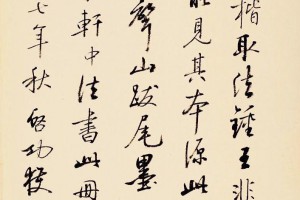 楷取法鍾王非
能見其本源此
聲山跋尾墨
軒中法書此冊
七年秋啓功獲